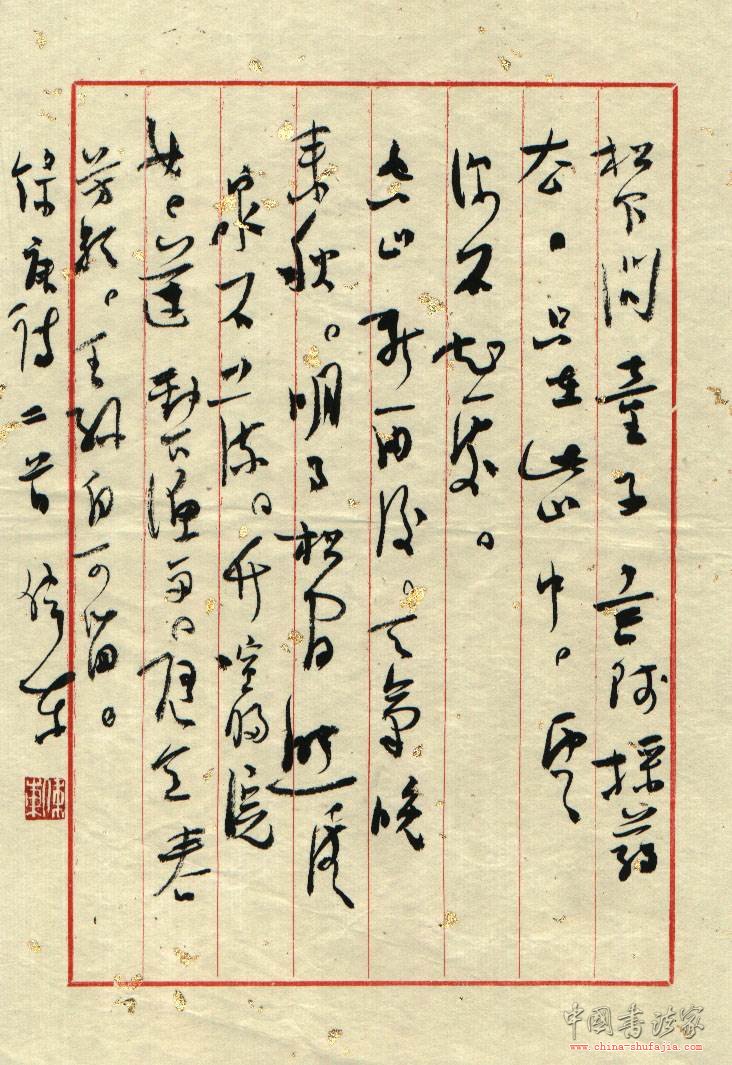 松下問童子言師採药
去。只在此山中。雲
深不知处。
空山新雨后。天氣晚
来秋。明月松间照清
泉石上流。竹喧归浣
女。莲动下渔舟。随意春
芳歇。王孙自可留。
錄唐诗二首
中國書法家
www.china-shufajia.com